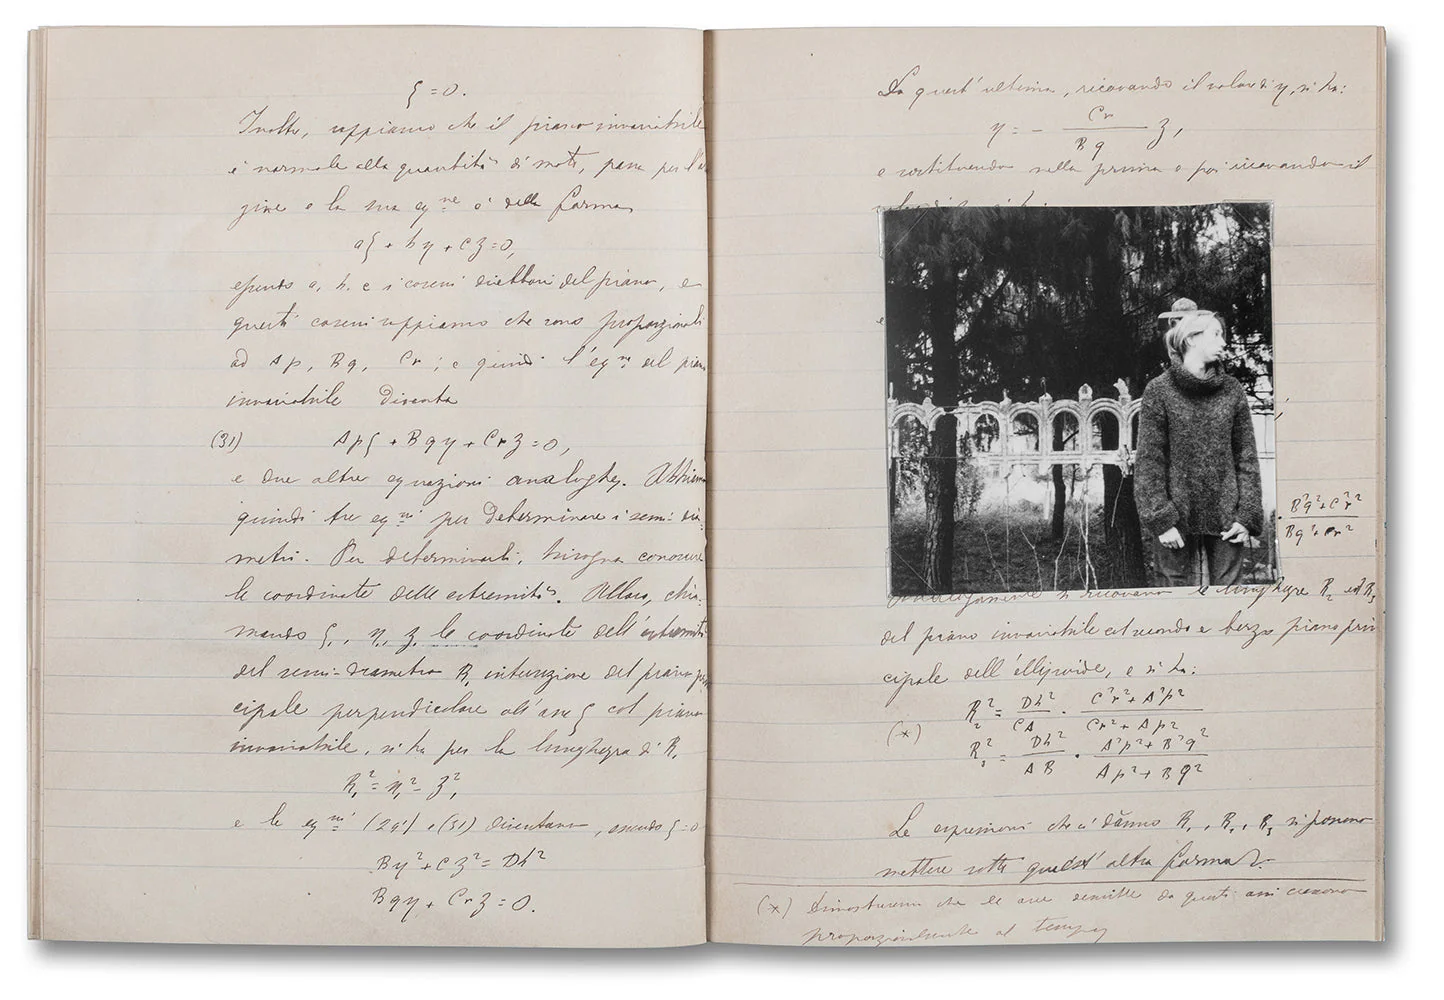 ξ = 0.
Inoltre, sappiamo che il piano invariabile
è normale alla quantità di moto, passa per l'o
gine e la sua eq.ne è della forma
aξ + bη + cζ = 0,
essendo a, b, c i coseni direttori del piano, e
questi coseni sappiamo che sono proporzionali
ad Ap, Bq, Cr; e quindi l'eq.ne del piano
invariabile diventa
(31) Apξ + Bqη + Crζ = 0,
e due altre equazioni analoghe. Abbiamo
quindi tre eq.ni per determinare i semi-dia-
metri. Per determinarli, bisogna conoscere
le coordinate delle estremità. Allora, chia-
mando ξ, η, ζ le coordinate dell'estremità
del semi-diametro R, intersezione del piano prin
cipale perpendicolare all'asse ξ col piano
invariabile, si ha per la lunghezza di R,
R₁² = η₁² = ζ₁²
e le eq.ni (29') e (31) diventano, essendo ξ = 0
Bη² + Cζ² = Dh²
Bqη + Crζ = 0.
Da quest'ultima, ricavando il valore di η, si ha:
η = - Cr/Bq ζ,
e sostituendo nella prima e poi ricavando il
B²q² + C²r² / Bq² + Cr²
Analogamente si ricavano le lunghezze R₂ ed R₃
del piano invariabile col secondo e terzo piano prin
cipale dell'ellissoide, e si ha:
R₂² = Dh²/CA · C²r² + A²p² / Cr² + Ap²
(*)
R₃² = Dh²/AB · A²p² + B²q² / Ap² + Bq²
Le espressioni che ci danno R₁, R₂, R₃ si possono
mettere sotto quest'altra forma
(*) Dimostreremo che le aree descritte da questi assi crescono
proporzionalmente al tempo